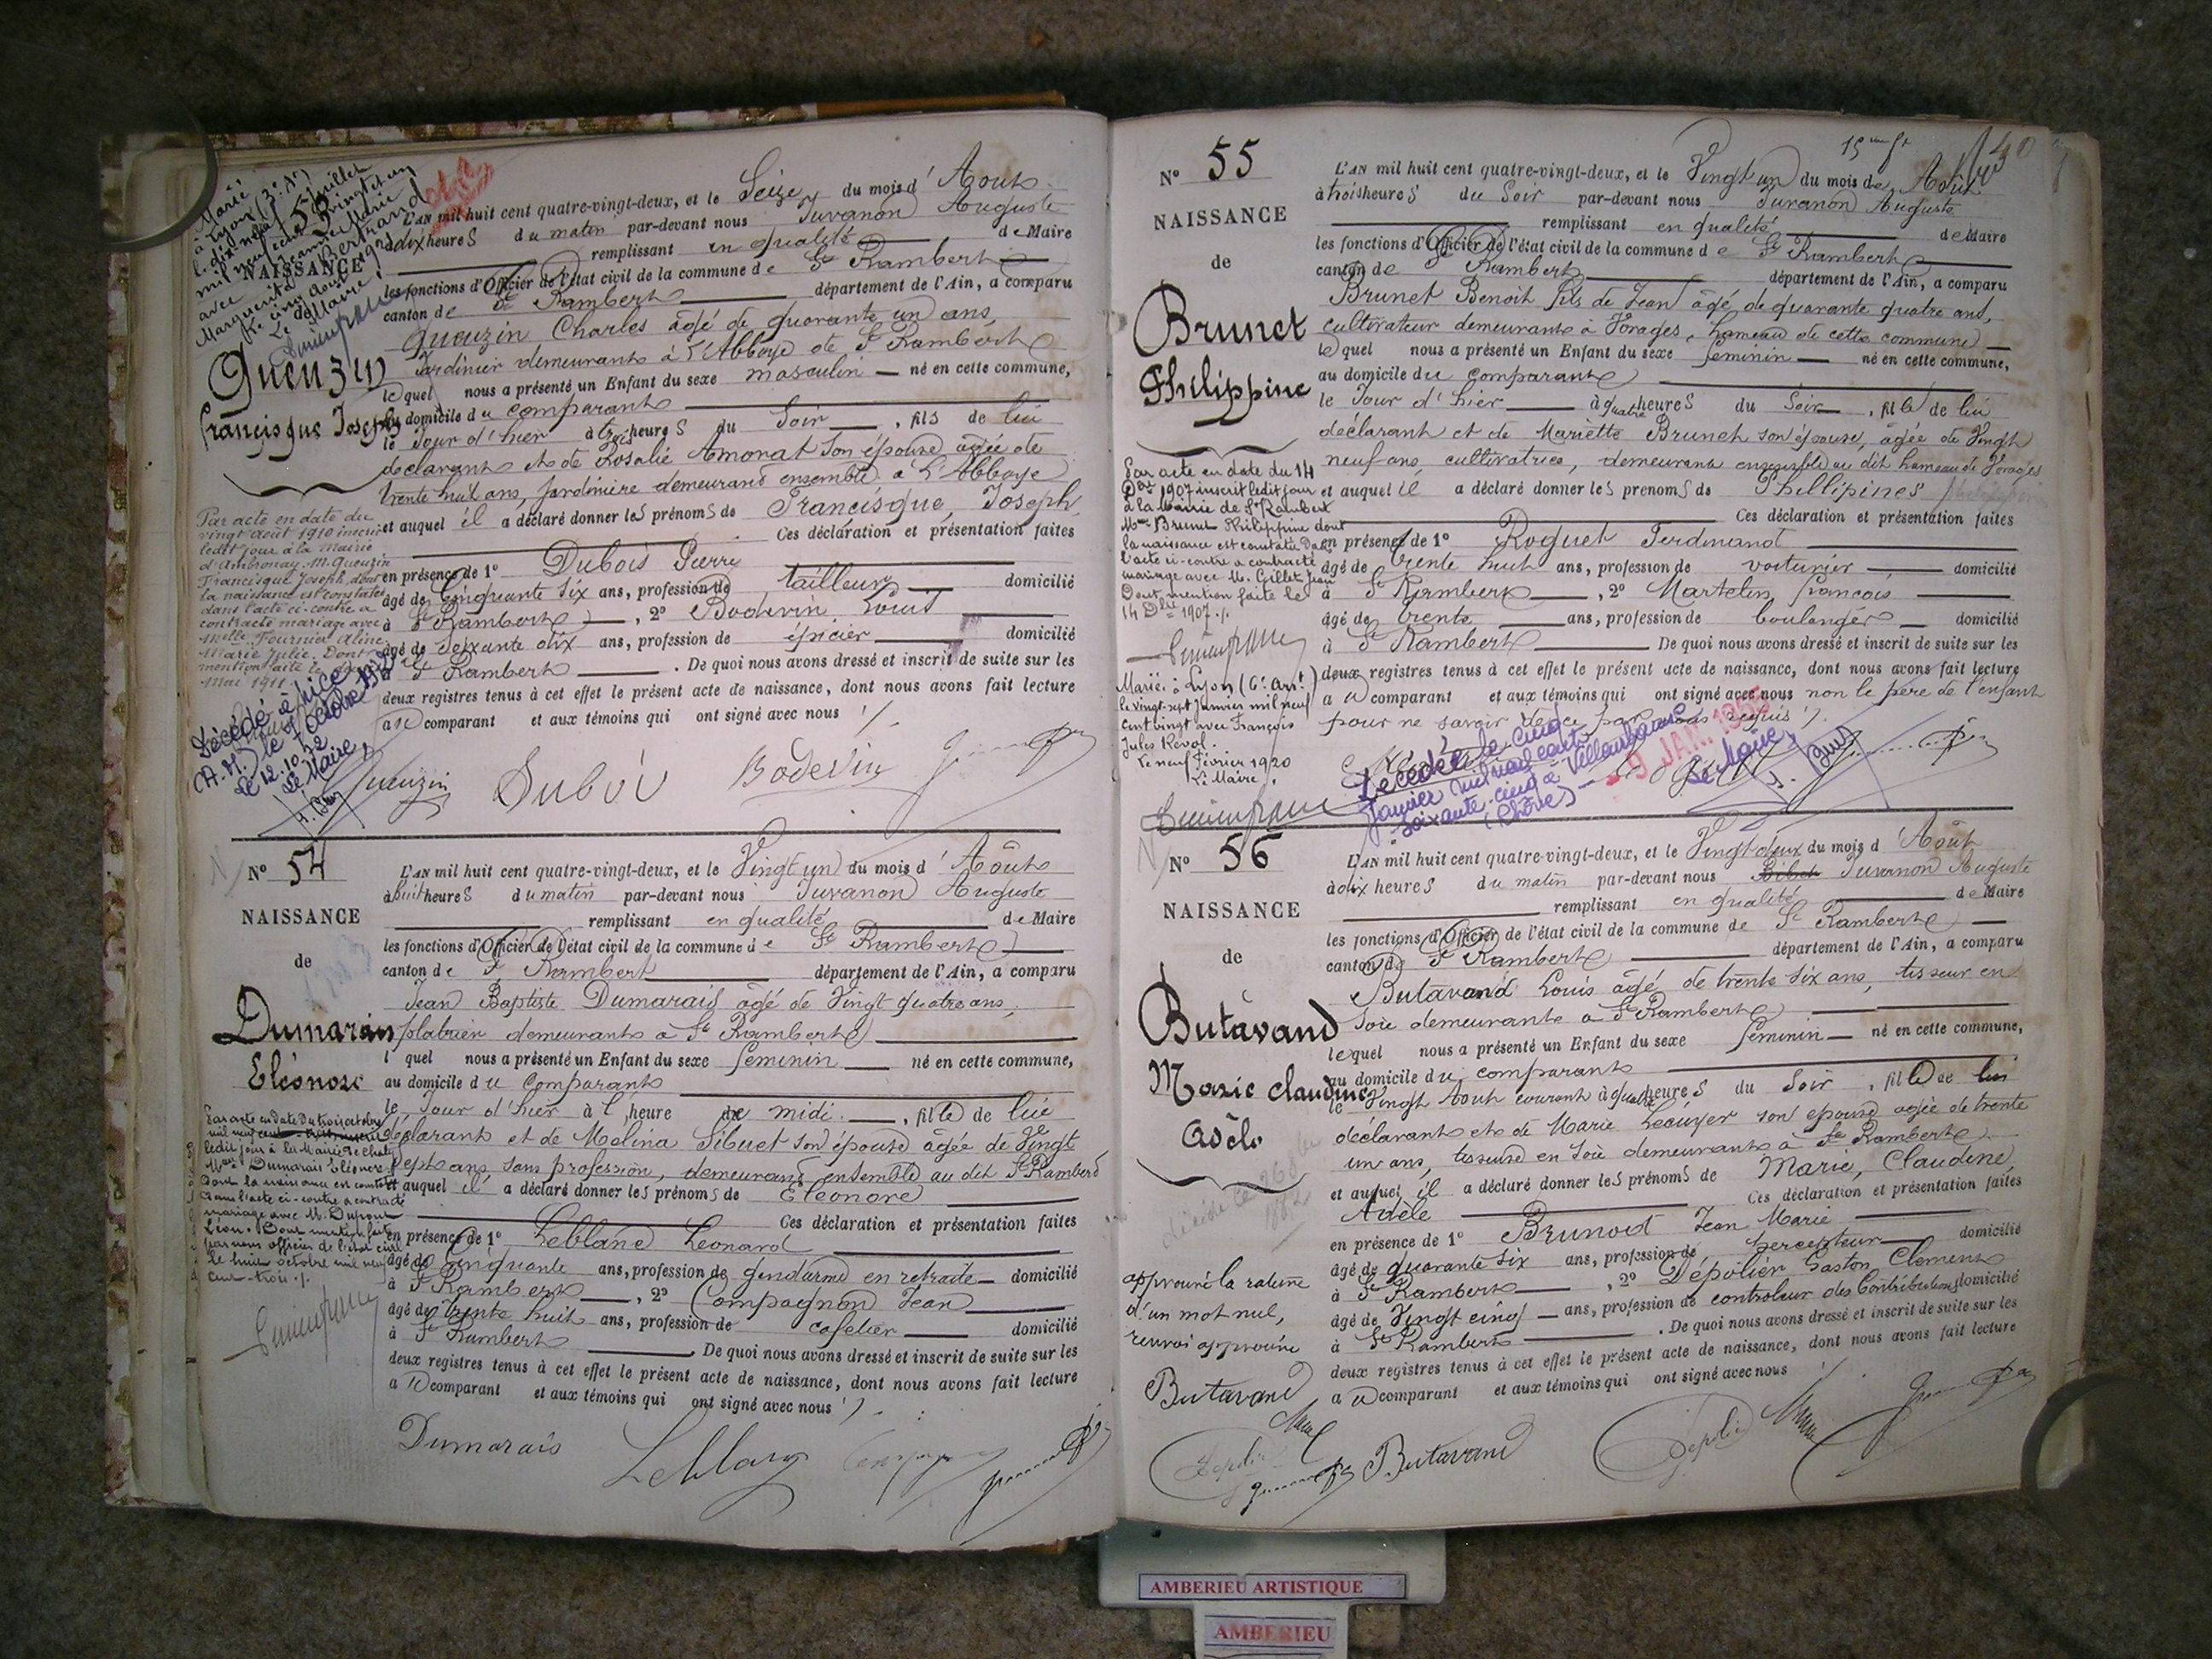 NAISSANCE
Queuzin
Francisque Joseph
L'AN mil huit cent quatre-vingt-deux, et le Seize du mois d' Aout
à dix heures du matin par-devant nous Juvanon Auguste
remplissant en qualité de Maire
les fonctions d'Officier de l'état civil de la commune de St Rambert
canton de St Rambert département de l'Ain, a comparu
Queuzin Charles âgé de quarante un ans,
Jardinier demeurant à l'Abbaye de St Rambert
lequel nous a présenté un Enfant du sexe masculin né en cette commune,
au domicile du comparant
le Jour d'hier à trois heures du Soir, fils de lui
declarant et de Rosalie Amonat son épouse âgée de
trente huit ans, jardinière demeurant ensemble a l'Abbaye
et auquel il a déclaré donner les prénoms de Francisque, Joseph
Ces déclaration et présentation faites
en présence de 1° Dubois Pierre
âgé de Cinquante six ans, profession de tailleur domicilié
à St Rambert, 2° Bodevin Louis
âgé de Soixante dix ans, profession de épicier domicilié
à St Rambert. De quoi nous avons dressé et inscrit de suite sur les
deux registres tenus à cet effet le présent acte de naissance, dont nous avons fait lecture
au comparant et aux témoins qui ont signé avec nous
Par acte en date du
vingt août 1910 inscrit
ledit jour à la Mairie
d'Ambronay, M. Queuzin
Francisque Joseph, dont
la naissance est constatée
dans l'acte ci-contre a
contracté mariage avec
Melle Fournier Aline
Marie Julie. Dont
mention faite le
Mai 1911.
Décédé à Nice
(A.M.) le 7 octobre
Le 12.10.
Le Maire,
Queuzin Dubois Bodevin
N° 54
NAISSANCE
de
Dumarais
Eléonore
L'AN mil huit cent quatre-vingt-deux, et le Vingt un du mois d' Août
à huit heures du matin par-devant nous Juvanon Auguste
remplissant en qualité de Maire
les fonctions d'Officier de l'état civil de la commune de St Rambert
canton de St Rambert département de l'Ain, a comparu
Jean Baptiste Dumarais âgé de Vingt quatre ans,
platrier demeurant a St Rambert
l quel nous a présenté un Enfant du sexe feminin né en cette commune,
au domicile du Comparant
le Jour d'hier à l'heure de midi, fille de lui
déclarant et de Melina Sibuet son épouse âgée de Vingt
sept ans, sans profession, demeurant ensemble au dit St Rambert
et auquel il a déclaré donner les prénoms de Eléonore
Ces déclaration et présentation faites
en présence de 1° Leblanc Léonard
âgé de Cinquante ans, profession de gendarme en retraite domicilié
à St Rambert, 2° Compagnon Jean
âgé de trente huit ans, profession de cafetier domicilié
à St Rambert. De quoi nous avons dressé et inscrit de suite sur les
deux registres tenus à cet effet le présent acte de naissance, dont nous avons fait lecture
au comparant et aux témoins qui ont signé avec nous
Mme Dumarais Eléonore
dont la naissance est constatée
dans l'acte ci-contre a contracté
mariage avec M. Dupont
Léon. Dont mention faite
par nous officier de l'état civil
le huit octobre mil neuf
cent-trois
Dumarais Leblanc
N° 55
NAISSANCE
de
Brunet
Philippine
L'AN mil huit cent quatre-vingt-deux, et le Vingt un du mois de Août
à trois heures du Soir par-devant nous Juvanon Auguste
remplissant en qualité de Maire
les fonctions d'Officier de l'état civil de la commune de St Rambert
canton de St Rambert département de l'Ain, a comparu
Brunet Benoit fils de Jean âgé de quarante quatre ans,
cultivateur demeurant à Vorages, hameau de cette commune
lequel nous a présenté un Enfant du sexe feminin né en cette commune,
au domicile du comparant
le Jour d'hier à quatre heures du Soir, fille de lui
déclarant et de Mariette Brunet son épouse, âgée de Vingt
neuf ans, cultivatrice, demeurant ensemble au dit hameau de Vorages
et auquel il a déclaré donner les prenoms de Phillipines
Ces déclaration et présentation faites
en présence de 1° Roguet Ferdinand
âgé de trente huit ans, profession de voiturier domicilié
à St Rambert, 2° Martelin, françois
âgé de trente ans, profession de boulanger domicilié
à St Rambert De quoi nous avons dressé et inscrit de suite sur les
deux registres tenus à cet effet le présent acte de naissance, dont nous avons fait lecture
au comparant et aux témoins qui ont signé avec nous non le père de l'enfant
pour ne savoir de ce par nous requis
Par acte en date du 14
Dbre 1907 inscrit ledit jour
à la Mairie de St Rambert
Mme Brunet Philippine dont
la naissance est constatée dans
l'acte ci-contre a contracté
mariage avec M. Gillet Jean
Dont mention faite le
14 Dbre 1907
Mariée à Lyon (6e Arrt)
le vingt-sept Janvier mil neuf
cent vingt avec François
Jules Revol.
Le neuf Février 1920
Le Maire,
Décédée le cinq
Janvier mil neuf cent
soixante-cinq à Villeurbanne
(Rhône)
9 JAN. 1965
Le Maire,
N° 56
NAISSANCE
de
Butavand
Marie Claudine
Adèle
L'AN mil huit cent quatre-vingt-deux, et le Vingt deux du mois d' Août
à dix heures du matin par-devant nous Juvanon Auguste
remplissant en qualité de Maire
les fonctions d'Officier de l'état civil de la commune de St Rambert
canton de St Rambert département de l'Ain, a comparu
Butavand Louis âgé de trente six ans, tisseur en
Soie demeurant a St Rambert
lequel nous a présenté un Enfant du sexe feminin né en cette commune,
au domicile du comparant
le Vingt Aout courant à quatre heures du Soir, fille de lui
déclarant et de Marie Lécuyer son epouse agée de trente
un ans, tisseuse en Soie demeurant à St Rambert
et auquel il a déclaré donner les prénoms de Marie, Claudine,
Adèle Ces déclaration et présentation faites
en présence de 1° Brunod Jean Marie
âgé de quarante six ans, profession de percepteur domicilié
à St Rambert, 2° Dépolier Gaston Clement
âgé de Vingt cinq ans, profession de controleur des Contributions domicilié
à St Rambert. De quoi nous avons dressé et inscrit de suite sur les
deux registres tenus à cet effet le présent acte de naissance, dont nous avons fait lecture
au comparant et aux témoins qui ont signé avec nous
approuvé la rature
d'un mot nul,
renvoi approuvé
Butavand
Butavand
AMBERIEU ARTISTIQUE
AMBERIEU